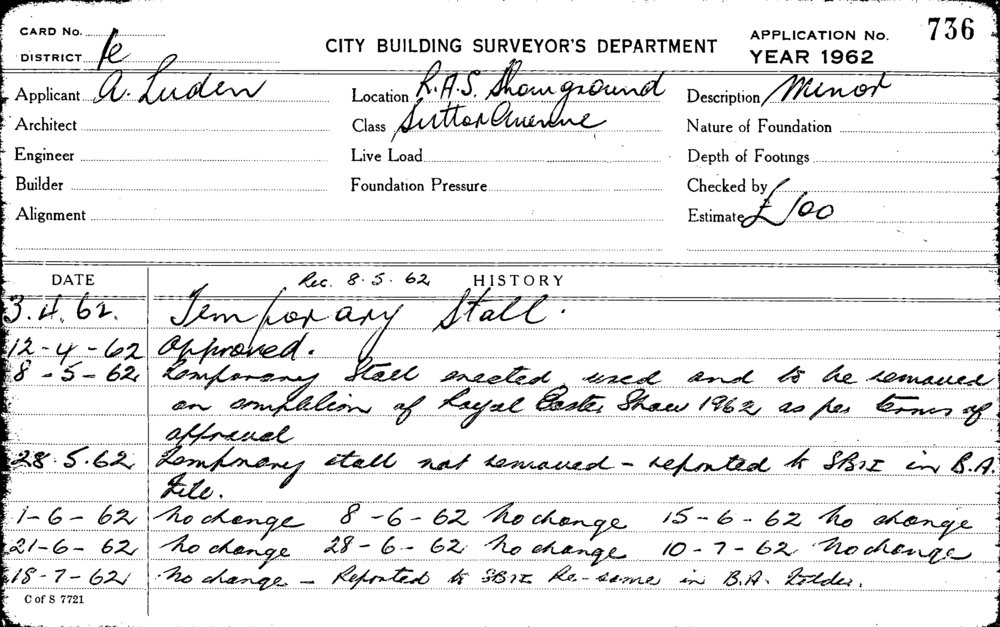 CARD No.
CITY BUILDING SURVEYOR'S DEPARTMENT
APPLICATION No. 736
DISTRICT
YEAR 1962
Applicant A. Luden Location R.A.S. Showground Description Minor
Architect Class Suttor Avenue Nature of Foundation
Engineer Live Load Depth of Footings
Builder Foundation Pressure Checked by
Alignment Estimate £100
DATE Rec. 8.5.62 HISTORY
3.4.62. Temporary Stall.
12-4-62 Approved.
8-5-62 Temporary Stall erected, used and to be removed
on completion of Royal Easter Show 1962 as per terms of
approval
28.5.62 Temporary stall not removed - reported to SBI in B.A.
File.
1-6-62 No change 8-6-62 No change 15-6-62 No change
21-6-62 No change 28-6-62 No change 10-7-62 No change
18-7-62 No change - Reported to SBI Re-same in B.A. Folder.
C of S 7721